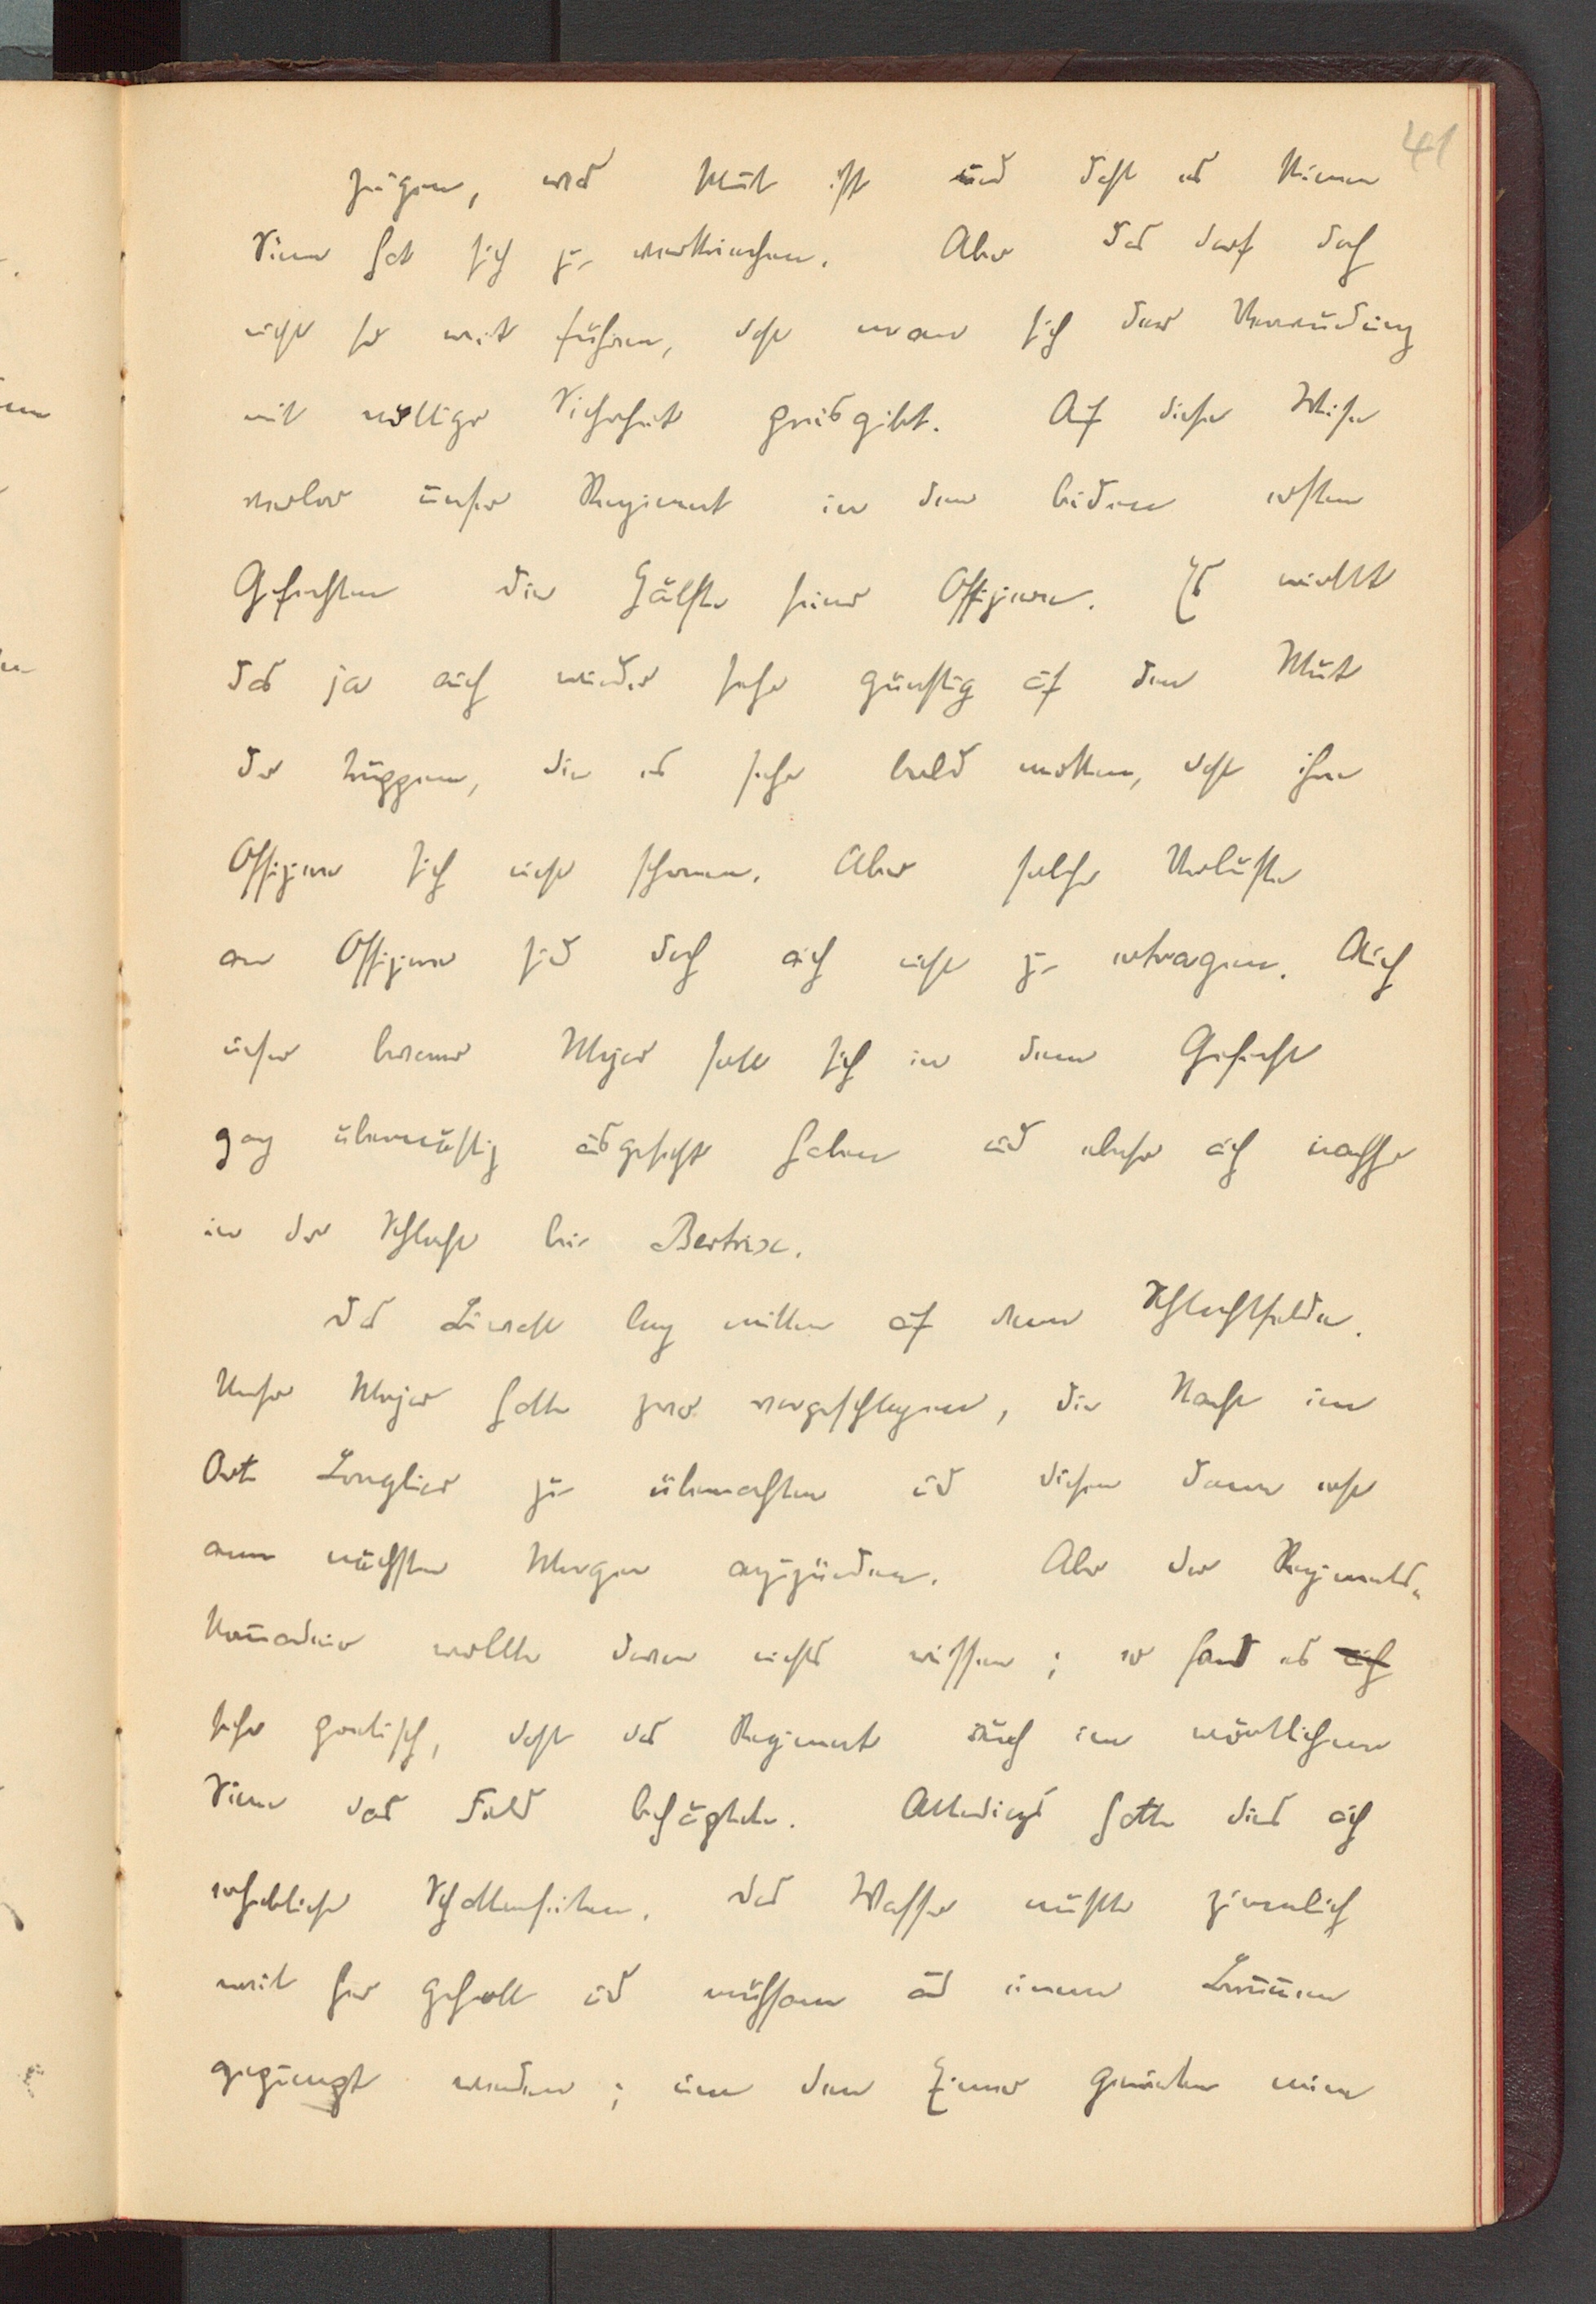 41
zeigen, was Mut ist und daß es keinen
Sinn hat sich zu verkriechen. Aber das darf doch
nicht so weit führen, daß man sich der Verwundung
mit völliger Sicherheit preisgibt. Auf diese Weise
verlor unser Regiment in den beiden ersten
Gefechten die Hälfte seiner Offiziere. Es wirkt
das ja auch wieder sehr günstig auf den Mut
der Truppen, die es sehr bald merken, daß ihre
Offiziere sich nicht schonen. Aber solche Verluste
an Offizieren sind doch auch nicht zu ertragen. Auch
unser braver Major soll sich in dem Gefecht
ganz übermütig ausgesetzt haben und ebenso auch nachher
in der Schlacht bei Bertrix.
Das Biwak lag mitten auf dem Schlachtfelde.
Unser Major hatte zwar vorgeschlagen, die Nacht im
Ort Longlier zu übernachten und diesen dann erst
am nächsten Morgen anzuzünden. Aber der Regiments-
kommandeur wollte davon nichts wissen; er fand es
sehr praktisch, daß das Regiment auch im wörtlichen
Sinne das Feld behauptete. Allerdings hatte dies auch
erhebliche Schattenseiten. Das Wasser mußte ziemlich
weit her geholt und mühsam aus einem Brunnen
gepumpt werden; um den Eimer